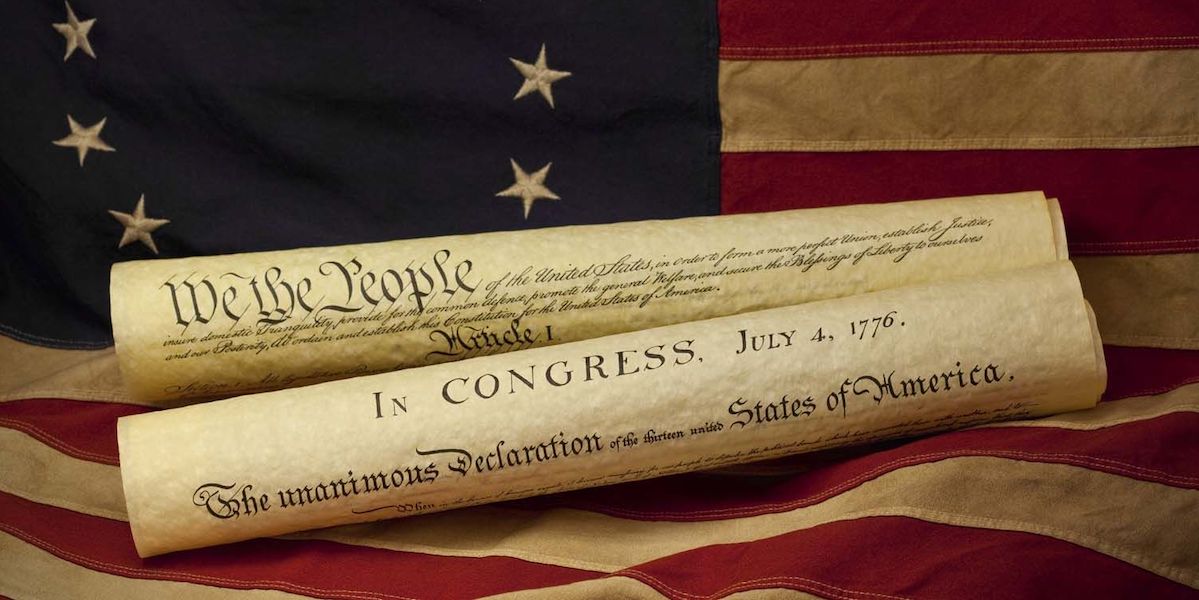 We the People of the United States, in order to form a more perfect Union, establish Justice,
insure domestic Tranquility, provide for the common defence, promote the general Welfare, and secure the Blessings of Liberty to ourselves
and our Posterity, do ordain and establish this Constitution for the United States of America.
Article I.
In CONGRESS, July 4, 1776.
The unanimous Declaration of the thirteen united States of America,
When in the